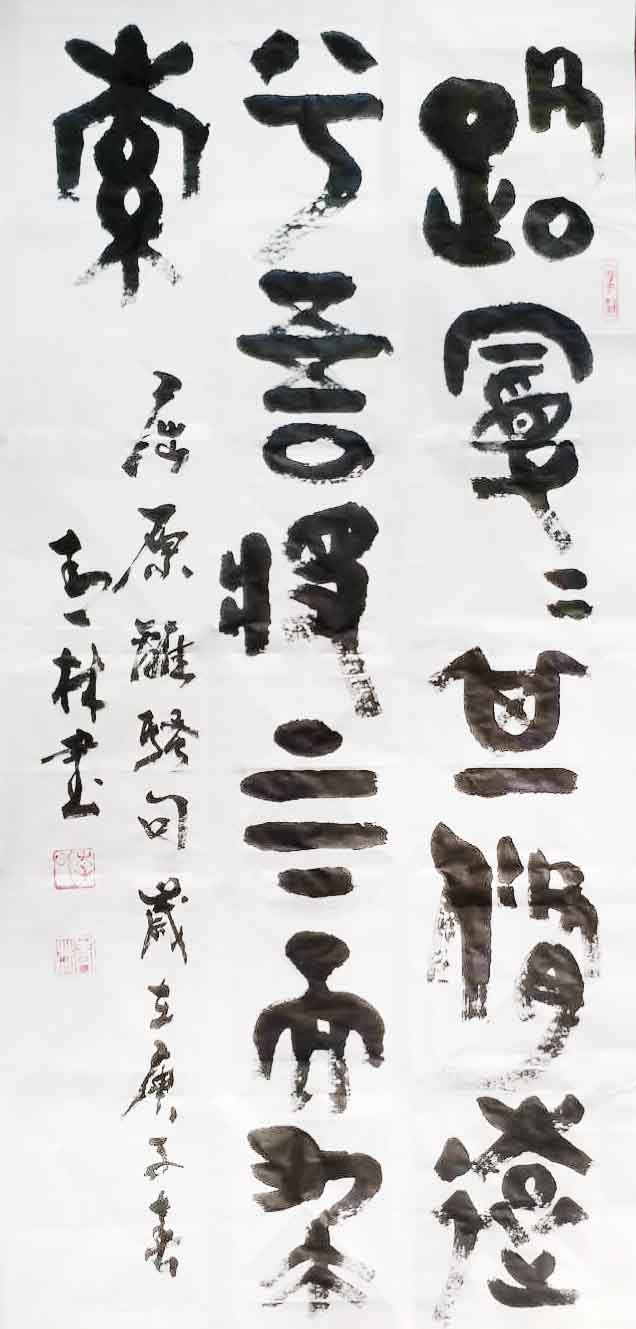 路曼〻其脩遠
兮吾將上下而求
索
屈原離騷句歲在庚子春
林書